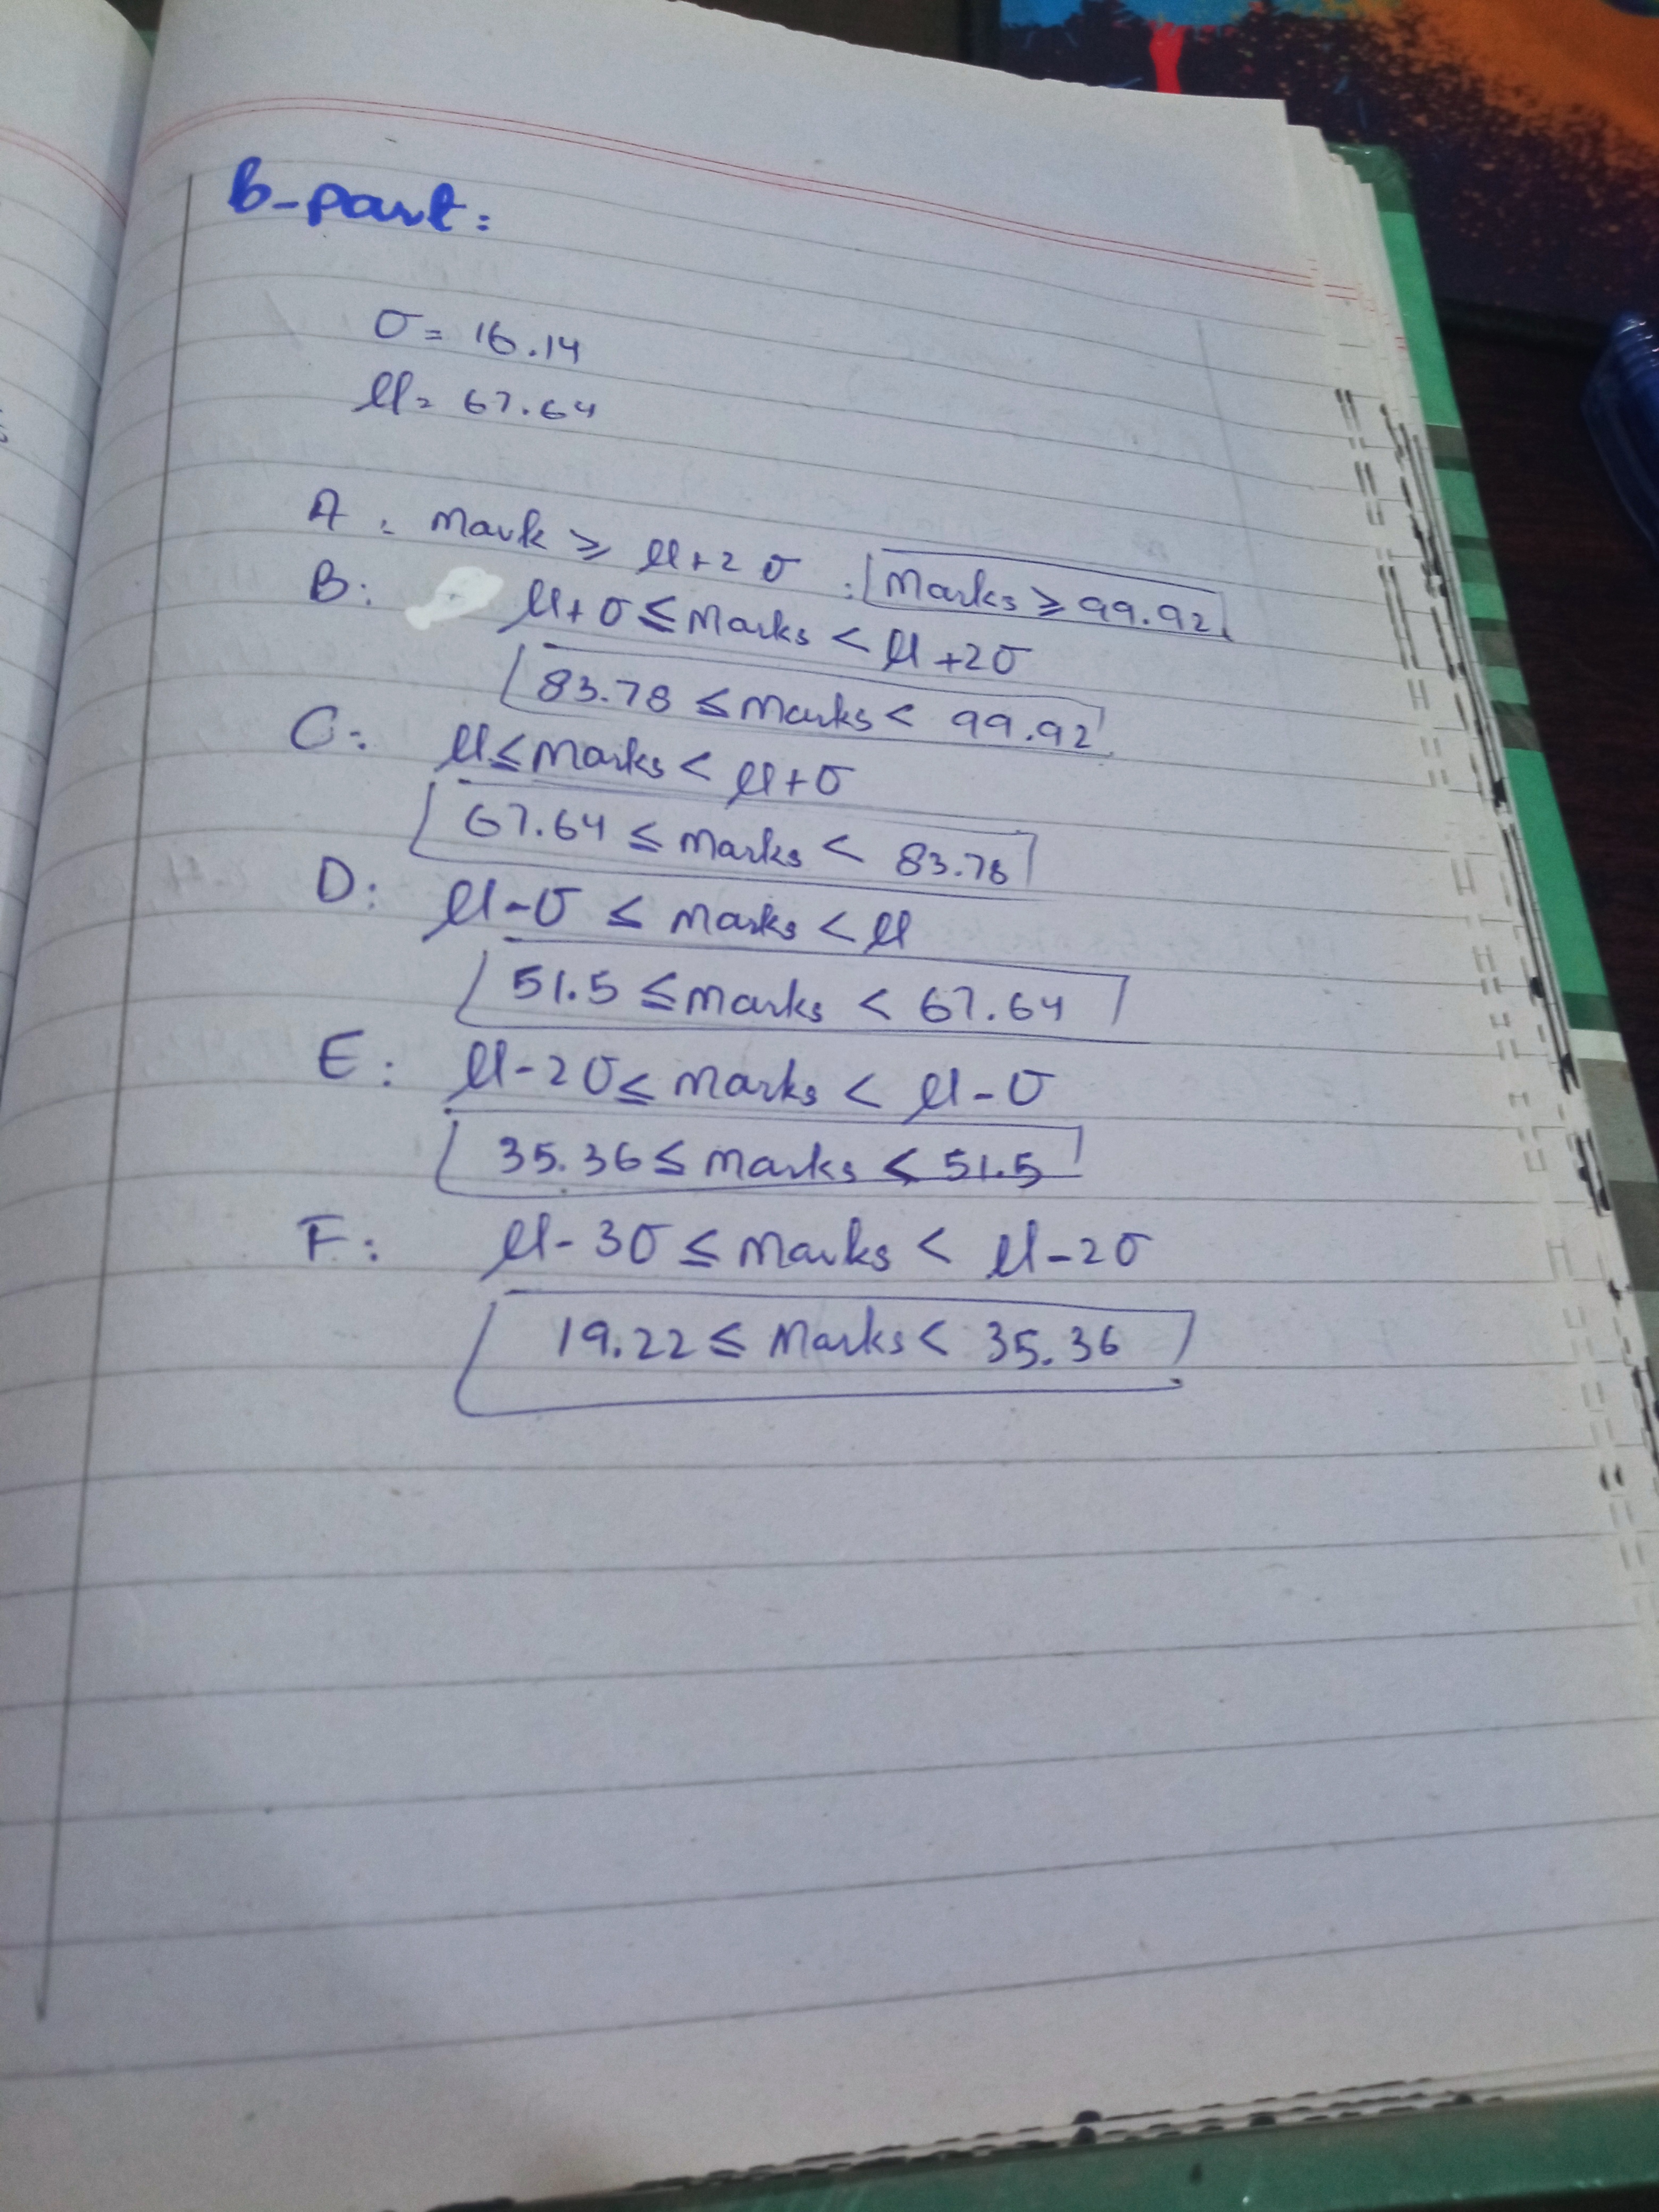 B-part:
σ = 16.14
μ = 67.64
A: Mark ≥ μ+2σ : Marks ≥ 99.92
B: μ+σ ≤ Marks < μ+2σ
83.78 ≤ Marks < 99.92
C: μ ≤ Marks < μ+σ
67.64 ≤ Marks < 83.78
D: μ-σ ≤ Marks < μ
51.5 ≤ Marks < 67.64
E: μ-2σ ≤ Marks < μ-σ
35.36 ≤ Marks < 51.5
F: μ-3σ ≤ Marks < μ-2σ
19.22 ≤ Marks < 35.36